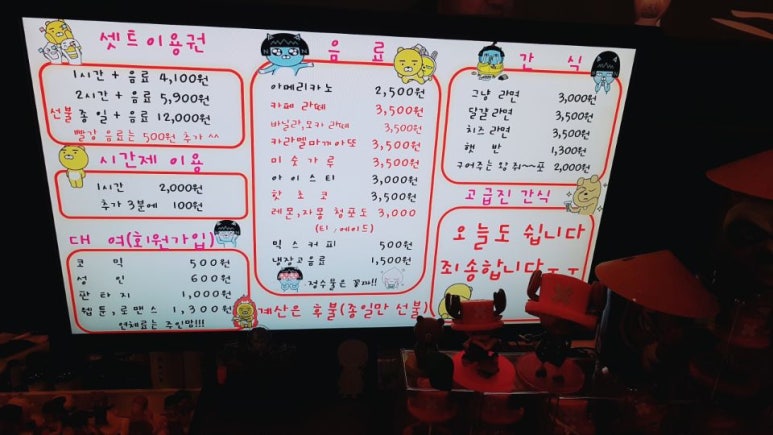 셋트이용권
1시간 + 음료 4,100원
2시간 + 음료 5,900원
선불 종일 + 음료 12,000원
빨강 음료는 500원 추가 ^^
시간제 이용
1시간 2,000원
추가 3분에 100원
대 여(회원가입)
코 믹 500원
성 인 600원
판 타 지 1,000원
웹툰,로맨스 1,300원
연체료는 주인맘!!!
음 료
아메리카노 2,500원
카페 라떼 3,500원
바닐라,모카 라떼 3,500원
카라멜마끼아또 3,500원
미 숫 가 루 3,500원
아 이 스 티 3,000원
핫 초 코 3,500원
레몬,자몽 청포도 3,000
(티,에이드)
믹 스 커 피 500원
냉장고음료 1,500원
정수물은 꽁짜!!
계산은 후불(종일만 선불)
간 식
그냥 라면 3,000원
달걀 라면 3,500원
치즈 라면 3,500원
햇 반 1,300원
구어주는 왕 쥐~~포 2,000원
고급진 간식
오늘도 쉽니다
죄송합니다ㅜㅜ